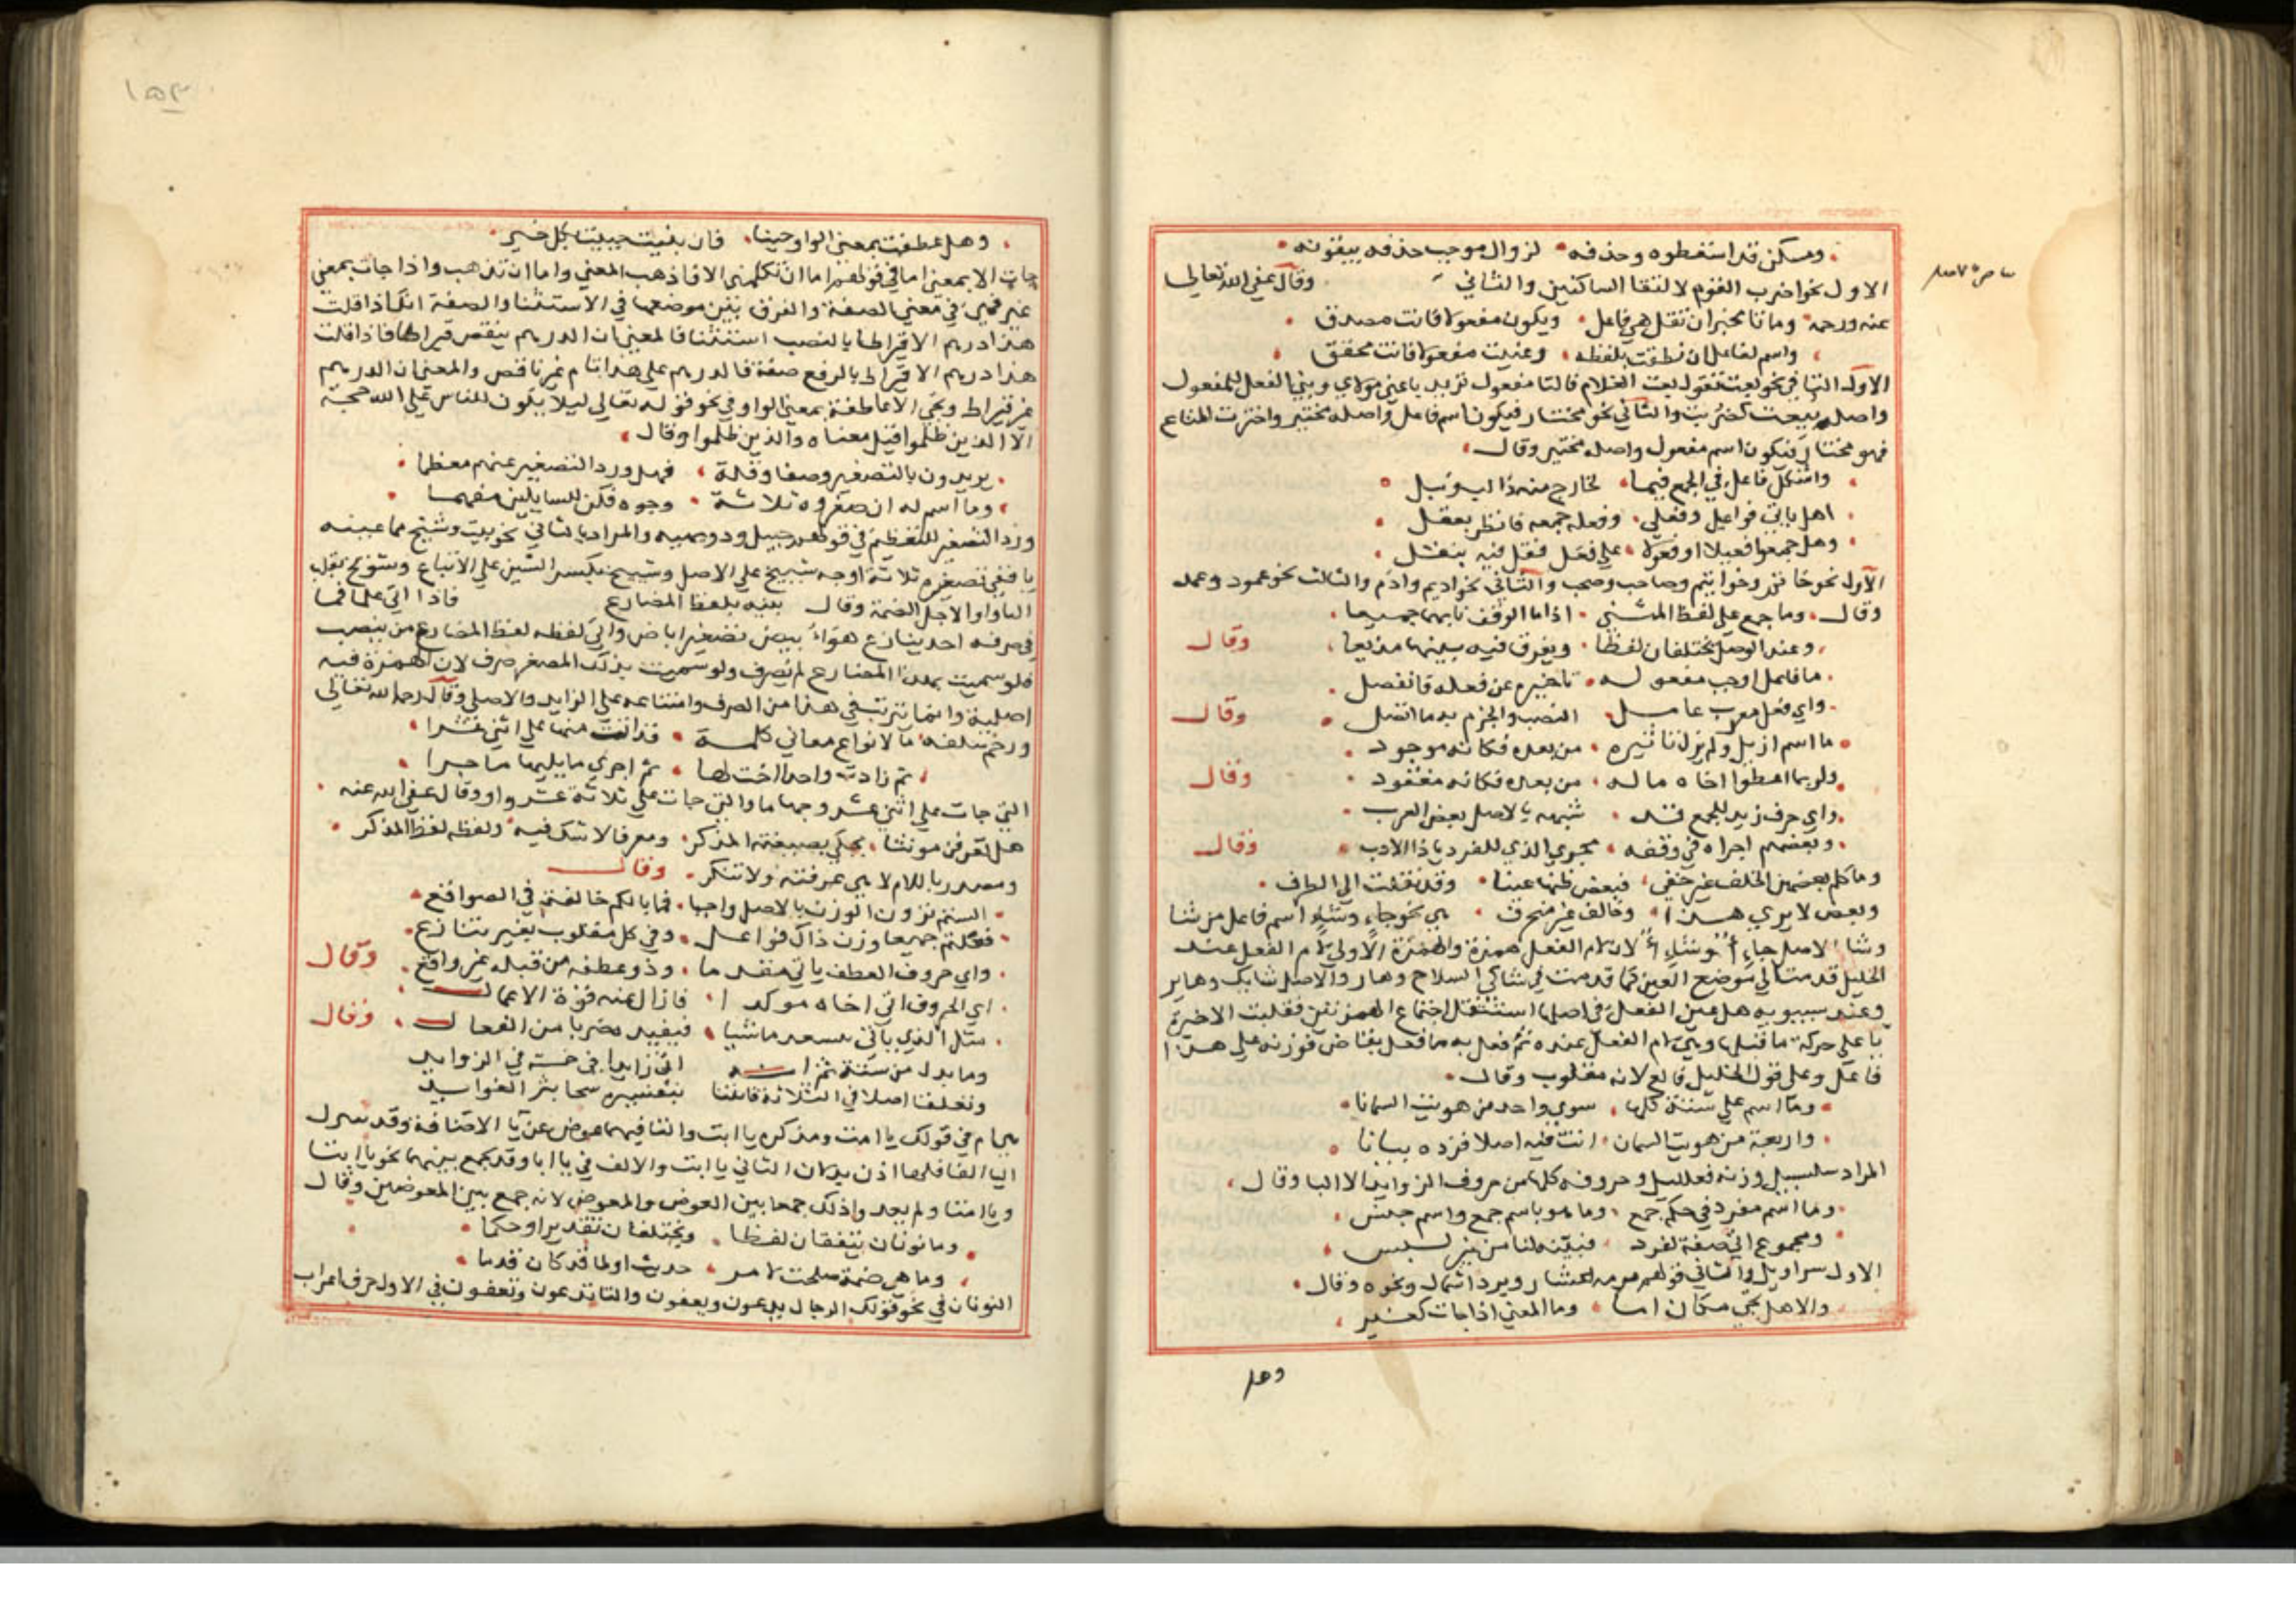 ومسكن قد اسقطوه وحذفه لزوال موجب حذفه يبقونه
الاول نحو اضرب القوم لالتقا الساكنين والثاني وقال عفي الله تعالي
عنه ورحمه وما تا مخبران تقل هي فاعل ويكون مفعولا فانت مصدق
واسم لفاعل ان نطقت بلفظه وعنيت مفعولا فانت محقق
الاول التا في نحو بعت تقول بعت الغلام فالتا مفعول تريد باعني مولاي وبني الفعل للمفعول
واصله بيعت كضربت والثاني نحو مختار فيكون اسم فاعل واصله مختير واخترت المتاع
فهو مختار فيكون اسم مفعول واصله مختير وقال
واشكل فاعل في الجمع فيما لخارج منه ذا اليه يؤيل
اهل ياتي فواعل وفعلي وفعله جمعه فانظر بعقل
وهل جمعوا فعيلا او فعولا علي فعل فقل فيه بنقل
الاول نحو خاتم وخواتيم وصاحب وصحب والثاني نحو اديم وادم والثالث نحو عمود وعمد
وقال وما جمع علي لفظ المثني اذا ما الوقف نابهما جميعا
وعند الوصل يختلفان لفظا ويفرق فيه بينهما مذيعا وقال
ما فاعل اوجب مفعوله تاخيره عن فعله فانفصل
واي فعل معرب عامل النصب والجزم به ما اتصل وقال
ما اسم ازيل ولم يزل تاثيره من بعده فكانه موجود
ولربما اعطوا اخاه ماله من بعده فكانه مفقود وقال
واي حرف زيد للجمع قد شبهه بالاصل بعض العرب
وبعضهم اجراه في وقفه مجري الذي للفرد يا ذا الادب وقال
وما كلم بعضهن الخلف غير خفي فبعض ظنها عينا وقد نقلت الي الطرف
وبعض لا يري هذا وخالف غير منحرف هي نحو جاء وشاء اسم فاعل من شا
وشا الاصل جاء لان لام الفعل همزة والهمزة الاولي لام الفعل عند
الخليل قدمت الي موضع العين كما قدمت في شاكي السلاح وهار والاصل شايك وهاير
وعند سيبويه هل عين الفعل في اصلها استثقل اجتماع الهمزتين فقلبت الاخيرة
يا علي حركة ما قبلها وهي لام الفعل عنده ثم فعل به ما فعل بقاض فوزنه علي هذا
فاعل وعلي قول الخليل فالع لانه مقلوب وقال
وما اسم علي ستة كلها سوي واحد من هويت السمانا
واربعة من هويت السمان اتت فيه اصلا فزده بيانا
المراد سلسبيل وزنه فعلليل وحروفه كلها من حروف الزوايد الا البا وقال
وما اسم مفرد في حكم جمع وما هو باسم جمع واسم جنس
ومجموع اتي صفة لفرد فبينه لنا من غير لبس
الاول سراويل والثاني قولهم برمة اعشار وبرد اسمال ونحوه وقال
والاهل يجي مكان اما وما المعني اذا جات كغير
وهل
١٥٣
وهل عطفت بمعني الواو حينا فان بينت جيت بكل خير
جات الا بمعني اما في قولهم اما ان تكلمني الا فاذهب المعني واما ان تذهب واذا جات بمعني
غير فهي في معني الصفة والفرق بين موضعها في الاستثنا والصفة انك اذا قلت
هذا درهم الا قيراطا بالنصب استثنا فالمعني ان الدرهم ينقص قيراطا فاذا قلت
هذا درهم الا قيراط بالرفع صفة فالدرهم علي هذا تام غير ناقص والمعني ان الدرهم
غير قيراط وتجي الا عاطفة بمعني الواو في نحو قوله تعالي ليلا يكون للناس علي الله حجة
الا الذين ظلموا قيل معناه والذين ظلموا وقال
يريدون بالتصغير وصفا وقلة فهل ورد التصغير عنهم معظما
وما اسم له ان صغروه ثلاثة وجوه فكن للسايلين مفهما
ورد التصغير للتعظيم في قولهم جبيل ودويهيه والمراد بالثاني نحو بيت وشيخ مما عينه
يا ففي تصغيره ثلاثة اوجه شييخ علي الاصل وشييخ بكسر الشين علي الاتباع وشويخ بقلب
اليا واوا لاجل الضمة وقال بينه بلفظ المضارع فاذا اتي علما فما
في صرفه احد ينازع هواء بيض تصغير ابيض واتي لفظه لفظ المضارع من بيض
فلو سميت بهذا المضارع لم يصرف ولو سميت بذلك المصغر صرف لان الهمزة فيه
اصلية وانما يترتب في هذا من الصرف وامتناعه علي الزايد والاصلي وقال رحمه الله تعالي
ورخم بلفه ما لانواع معاني كلمة قد اتت منها علي اثني عشرا
ثم زادت واحدا اخت لها ثم اجري ما يليها ما جرا
التي جات علي اثني عشر وجها ما والتي جات علي ثلاثة عشر واو وقال عفي الله عنه
هل تعرفن مونثا يحكي بصيغته المذكر ومعرفا لا شك فيه ولفظه لفظ المنكر
ومصدرا باللام لا هي عرفته ولا تنكر وقال
الستم تزون الوزن بالاصل واجبا فما بالكم خالفتم في الصواقع
فعلتم جميعا وزن ذاك فواعل وفي كل مقلوب بغير تنازع
واي حروف العطف ياتي مقدما وذو عطفه من قبله غير واقع وقال
اي الحروف اتي اخاه موكدا فازال عنه قوة الاعمال
مثل الذي ياتي ليسعد ماشيا فيفيد ضربا من الفعال وقال
وما بدل من ستة ثم انه اتي زايدا في خمسة في الزوايد
وتخلفا اصلا في الثلاثة فاتنا بتفسيره سحا بثر الفوايد
هي تا م في قولك يا امت ومذكره يا ابت والتا فيهما عوض عن يا الاضافة وقد تبدل
اليا الفا فلها اذن بدلان التاني يا ابت والالف في يا ابا وقد يجمع بينهما نحو يا ابتا
ويا امتا ولم يعد واذلك جمعا بين العوض والمعوض لانه جمع بين المعوضين وقال
وما نونان يتفقان لفظا ويختلفان تقديرا وحكما
وما هي ضمة صلحت لامر حديث اولها قد كان قدما
النونان في نحو قولك الرجال يدعون ويعفون والنسا يدعون ويعفون في الاول حرف اعراب